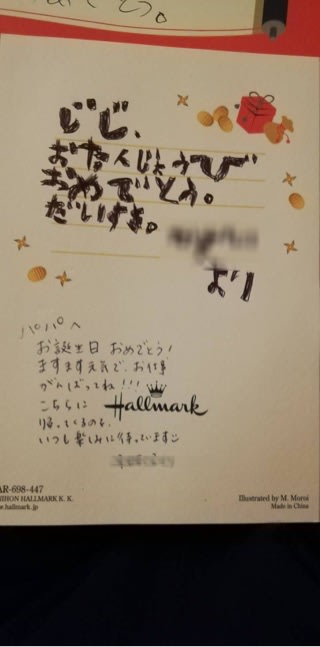 とう。
じじ、
おたんじょうび
おめでとう。
だいすき。
より
パパへ
お誕生日 おめでとう!
ますます元気で、お仕事
がんばってね!!!
こちらに
Hallmark
帰ってくるのを、
いつも楽しみに待っています
AR-698-447
NIHON HALLMARK K. K.
w.hallmark.jp
Illustrated by M. Moroi
Made in China